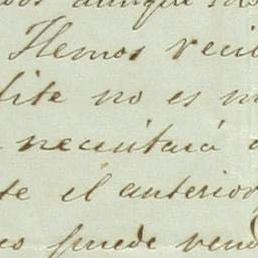 aunque
Hemos reci
lite no es m
necesitará a
te el anterior
co puede vend